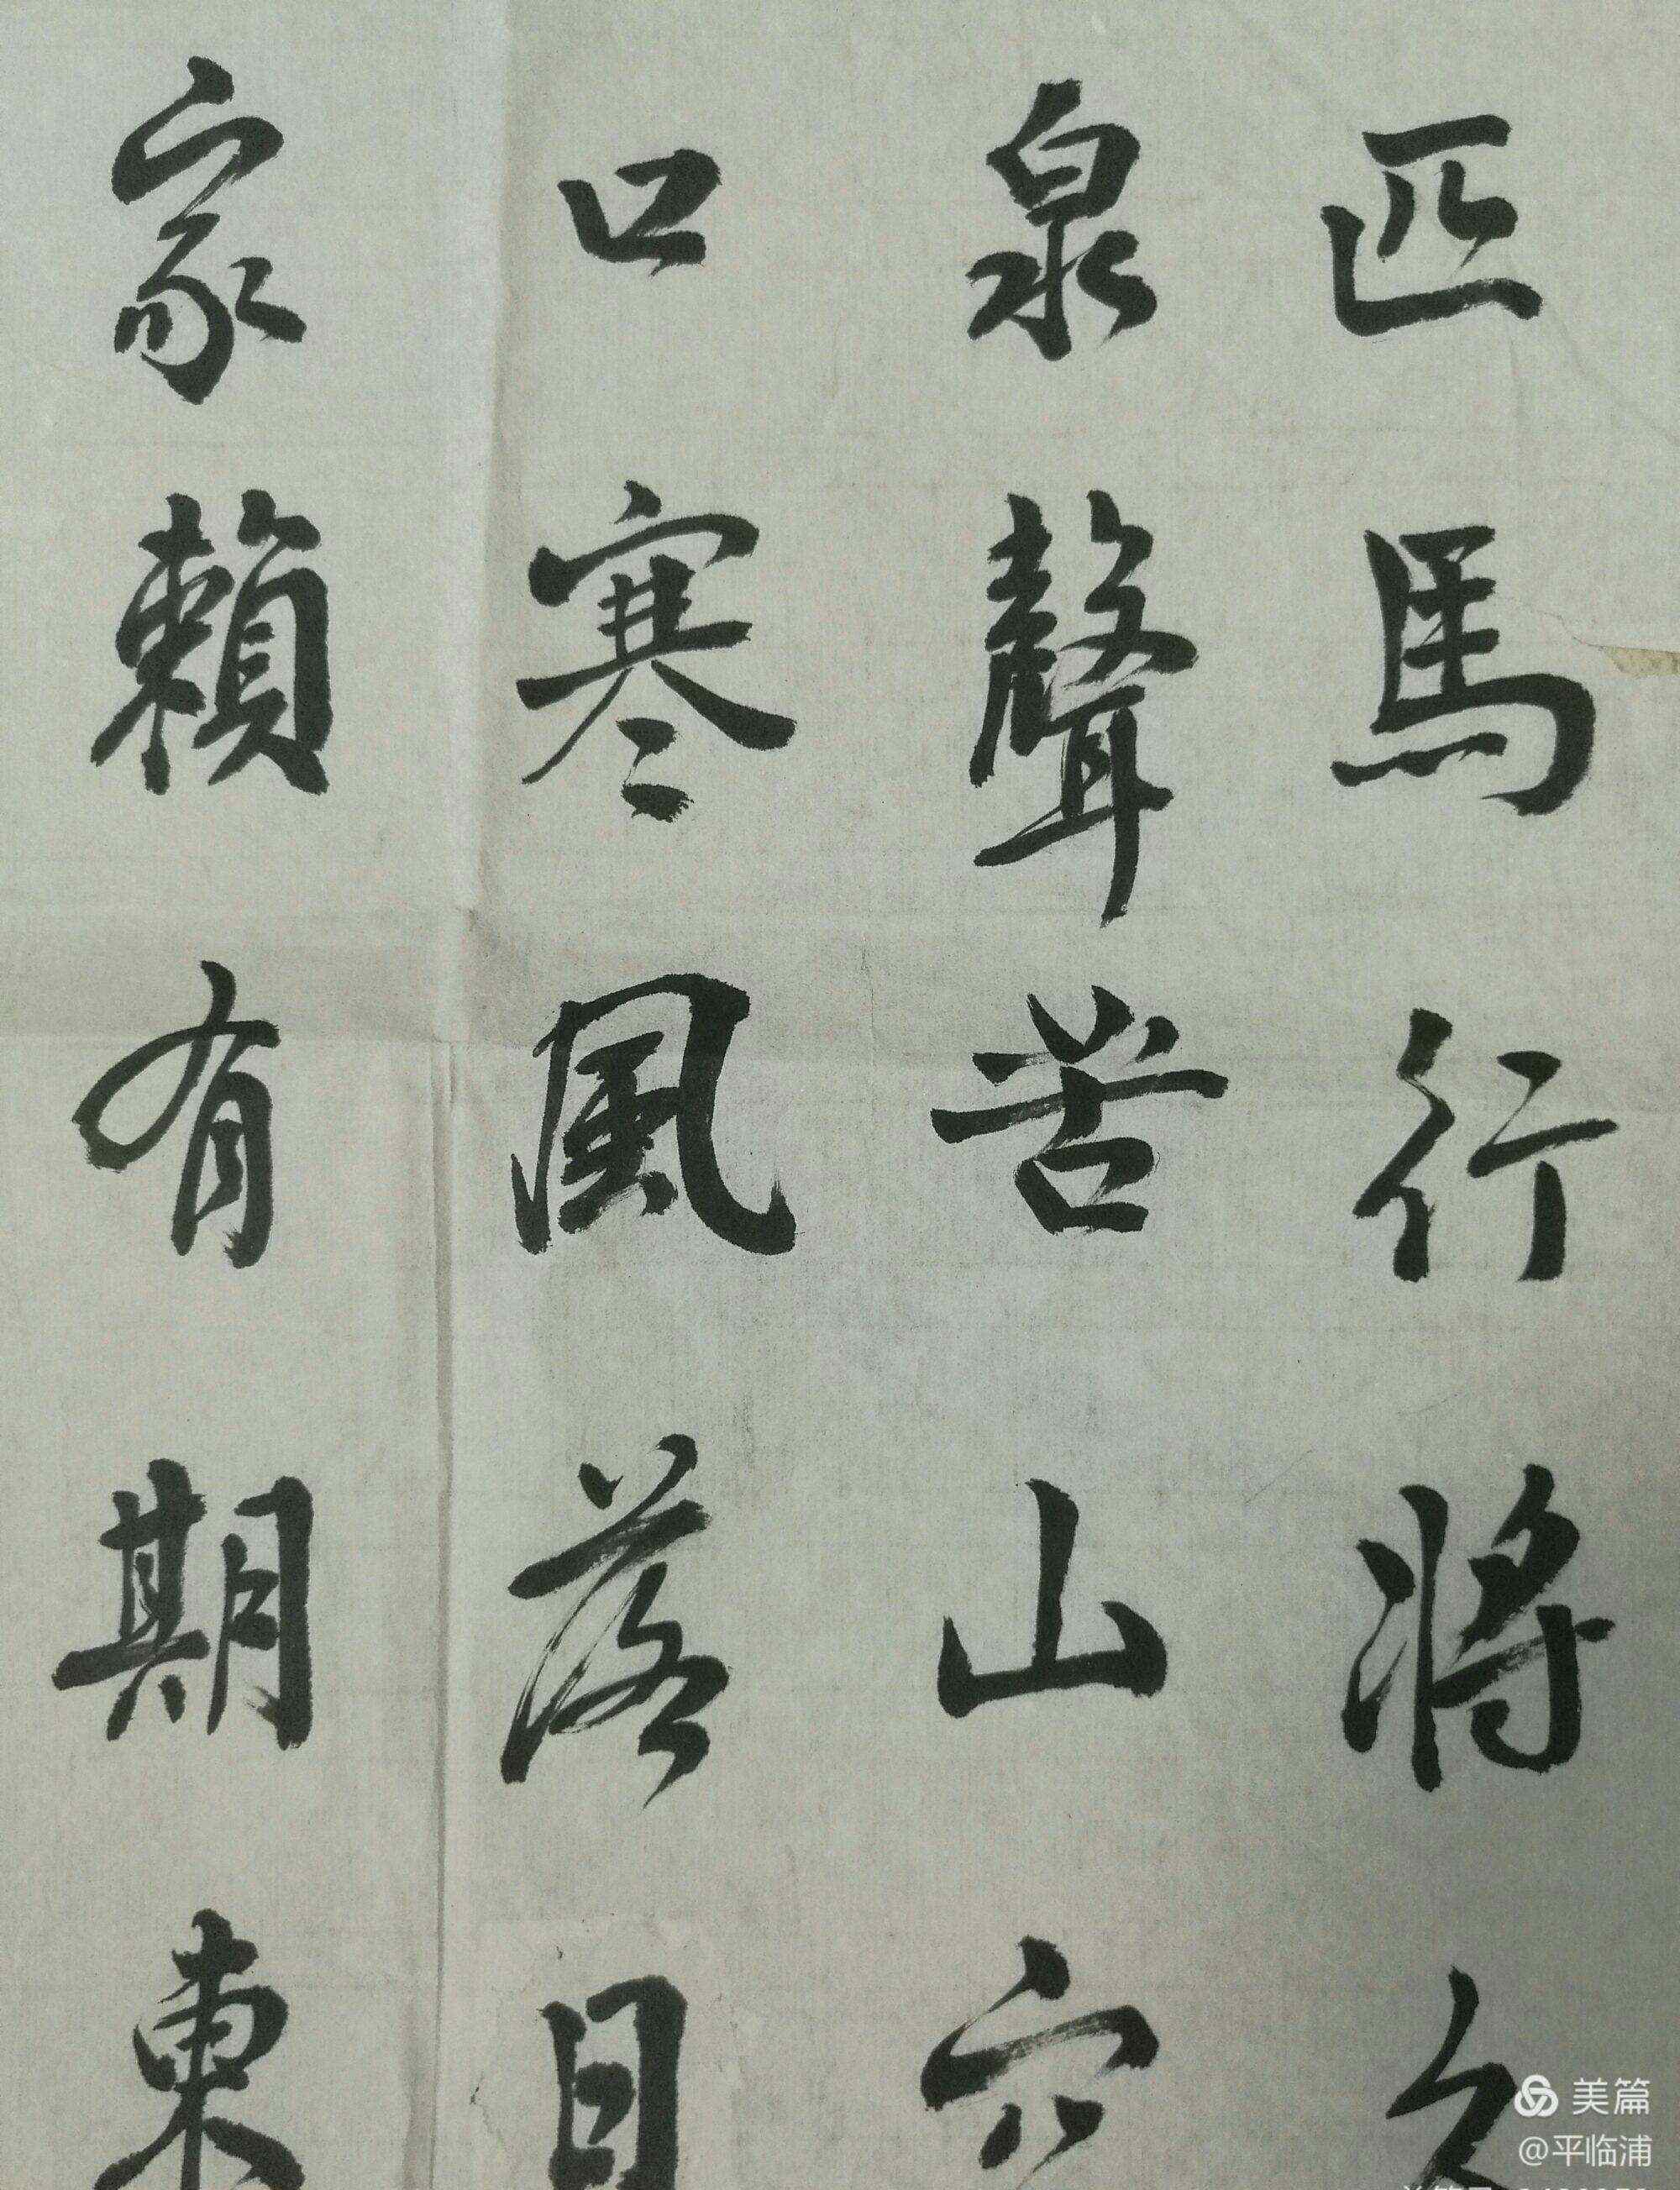 匹馬行將久
泉聲苦山空
口寒風落日
家賴有期東
美篇
@平临浦